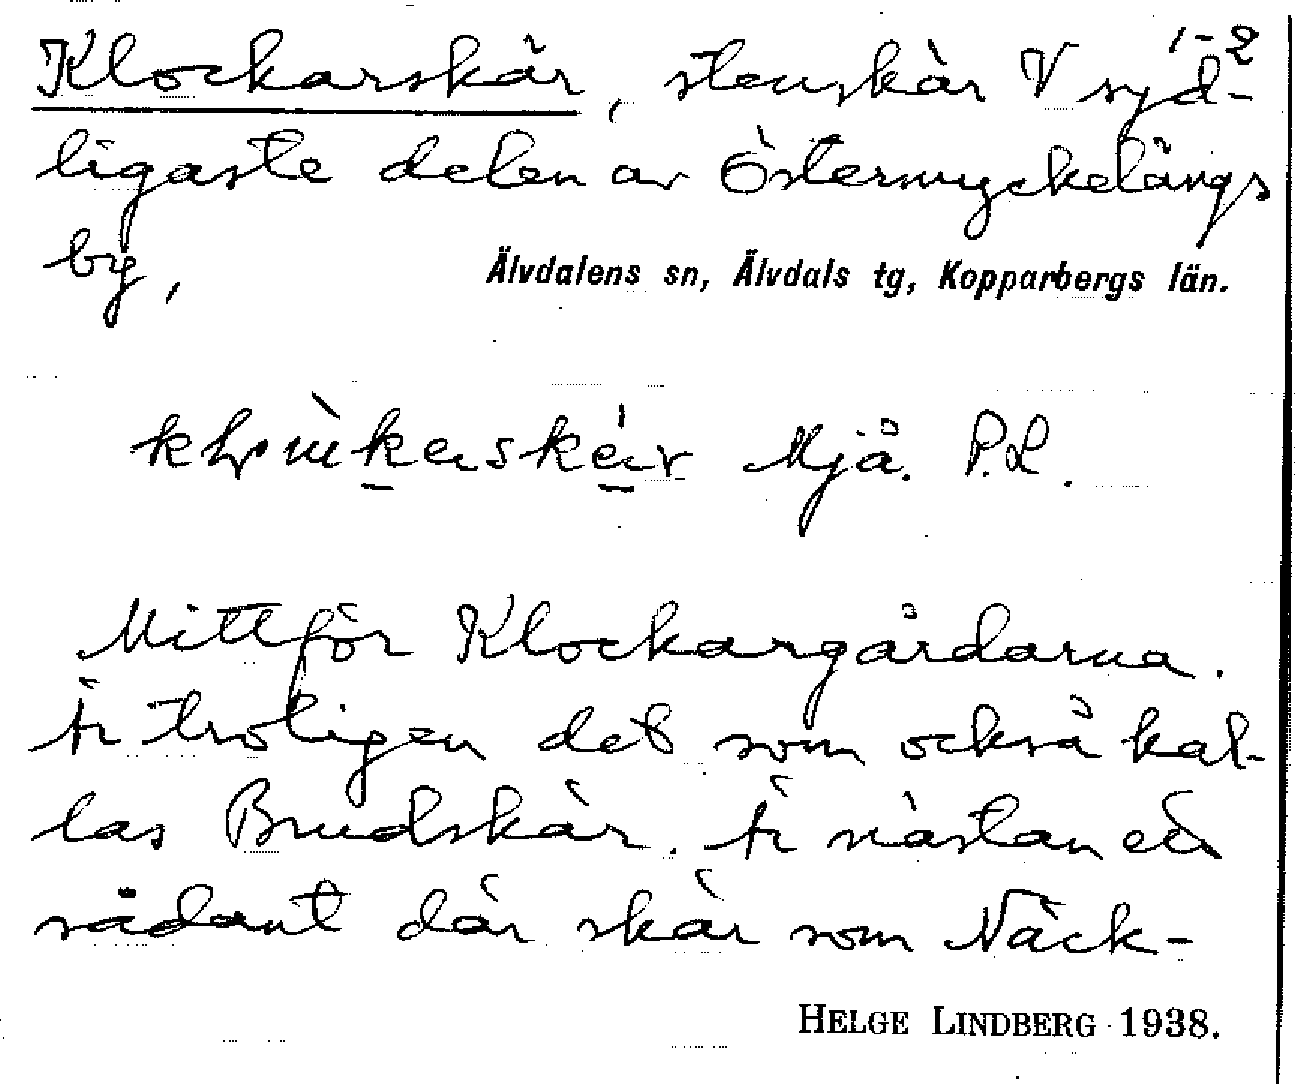 1-2
Klockarskär, stenskär V syd-
ligaste delen av Östermyckelängs
by,
Älvdalens sn, Älvdals tg, Kopparbergs län.
Mjå. P.L.
Mittför Klockargårdarna.
Är troligen det som också kal-
las Brudskär. Är nästan ett
sådant där skär som Näck-
HELGE LINDBERG 1938.